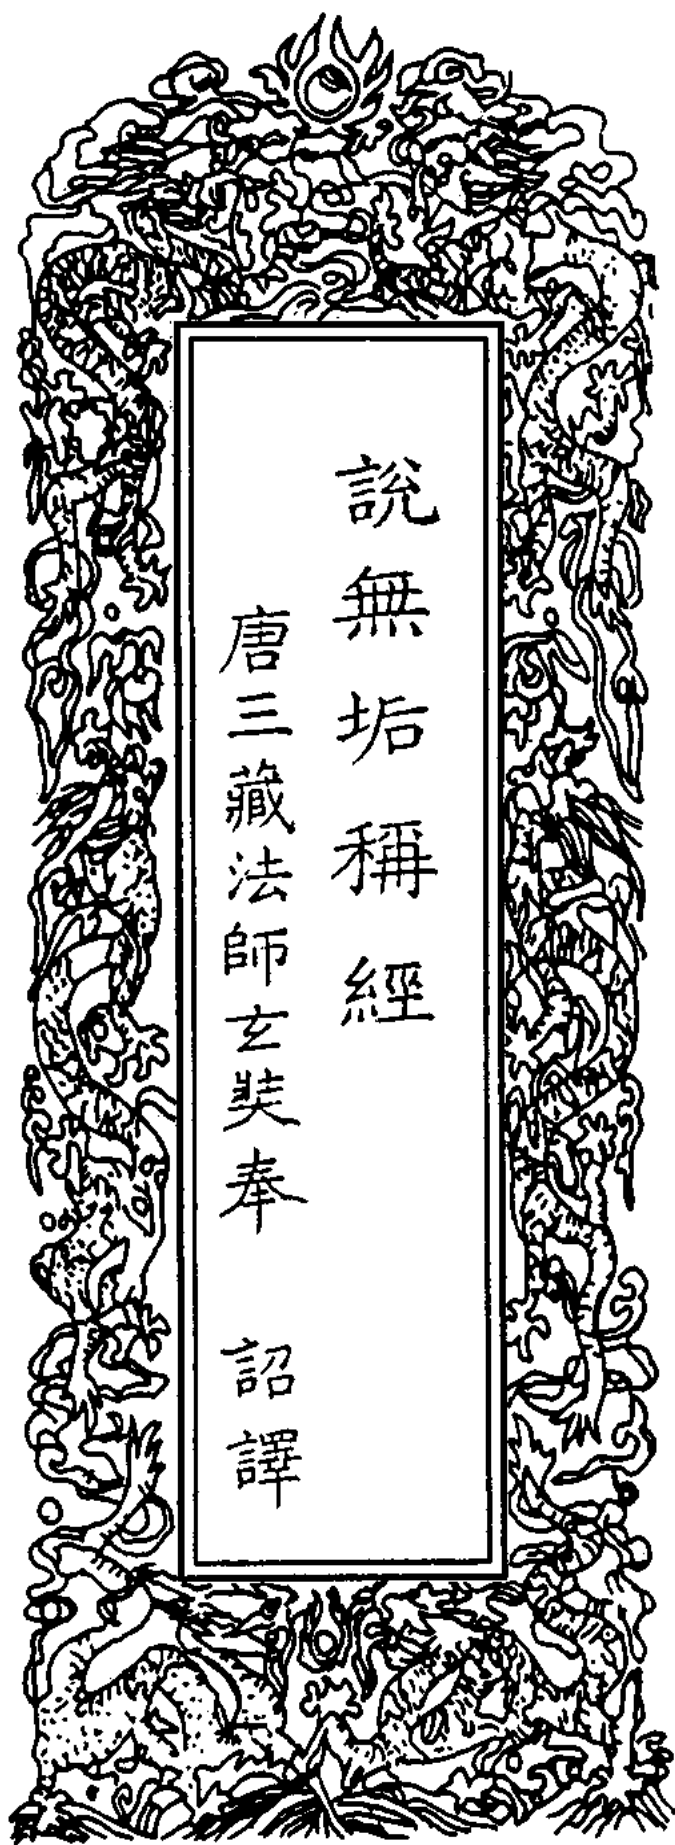 說無垢稱經
唐三藏法師玄奘奉　詔譯